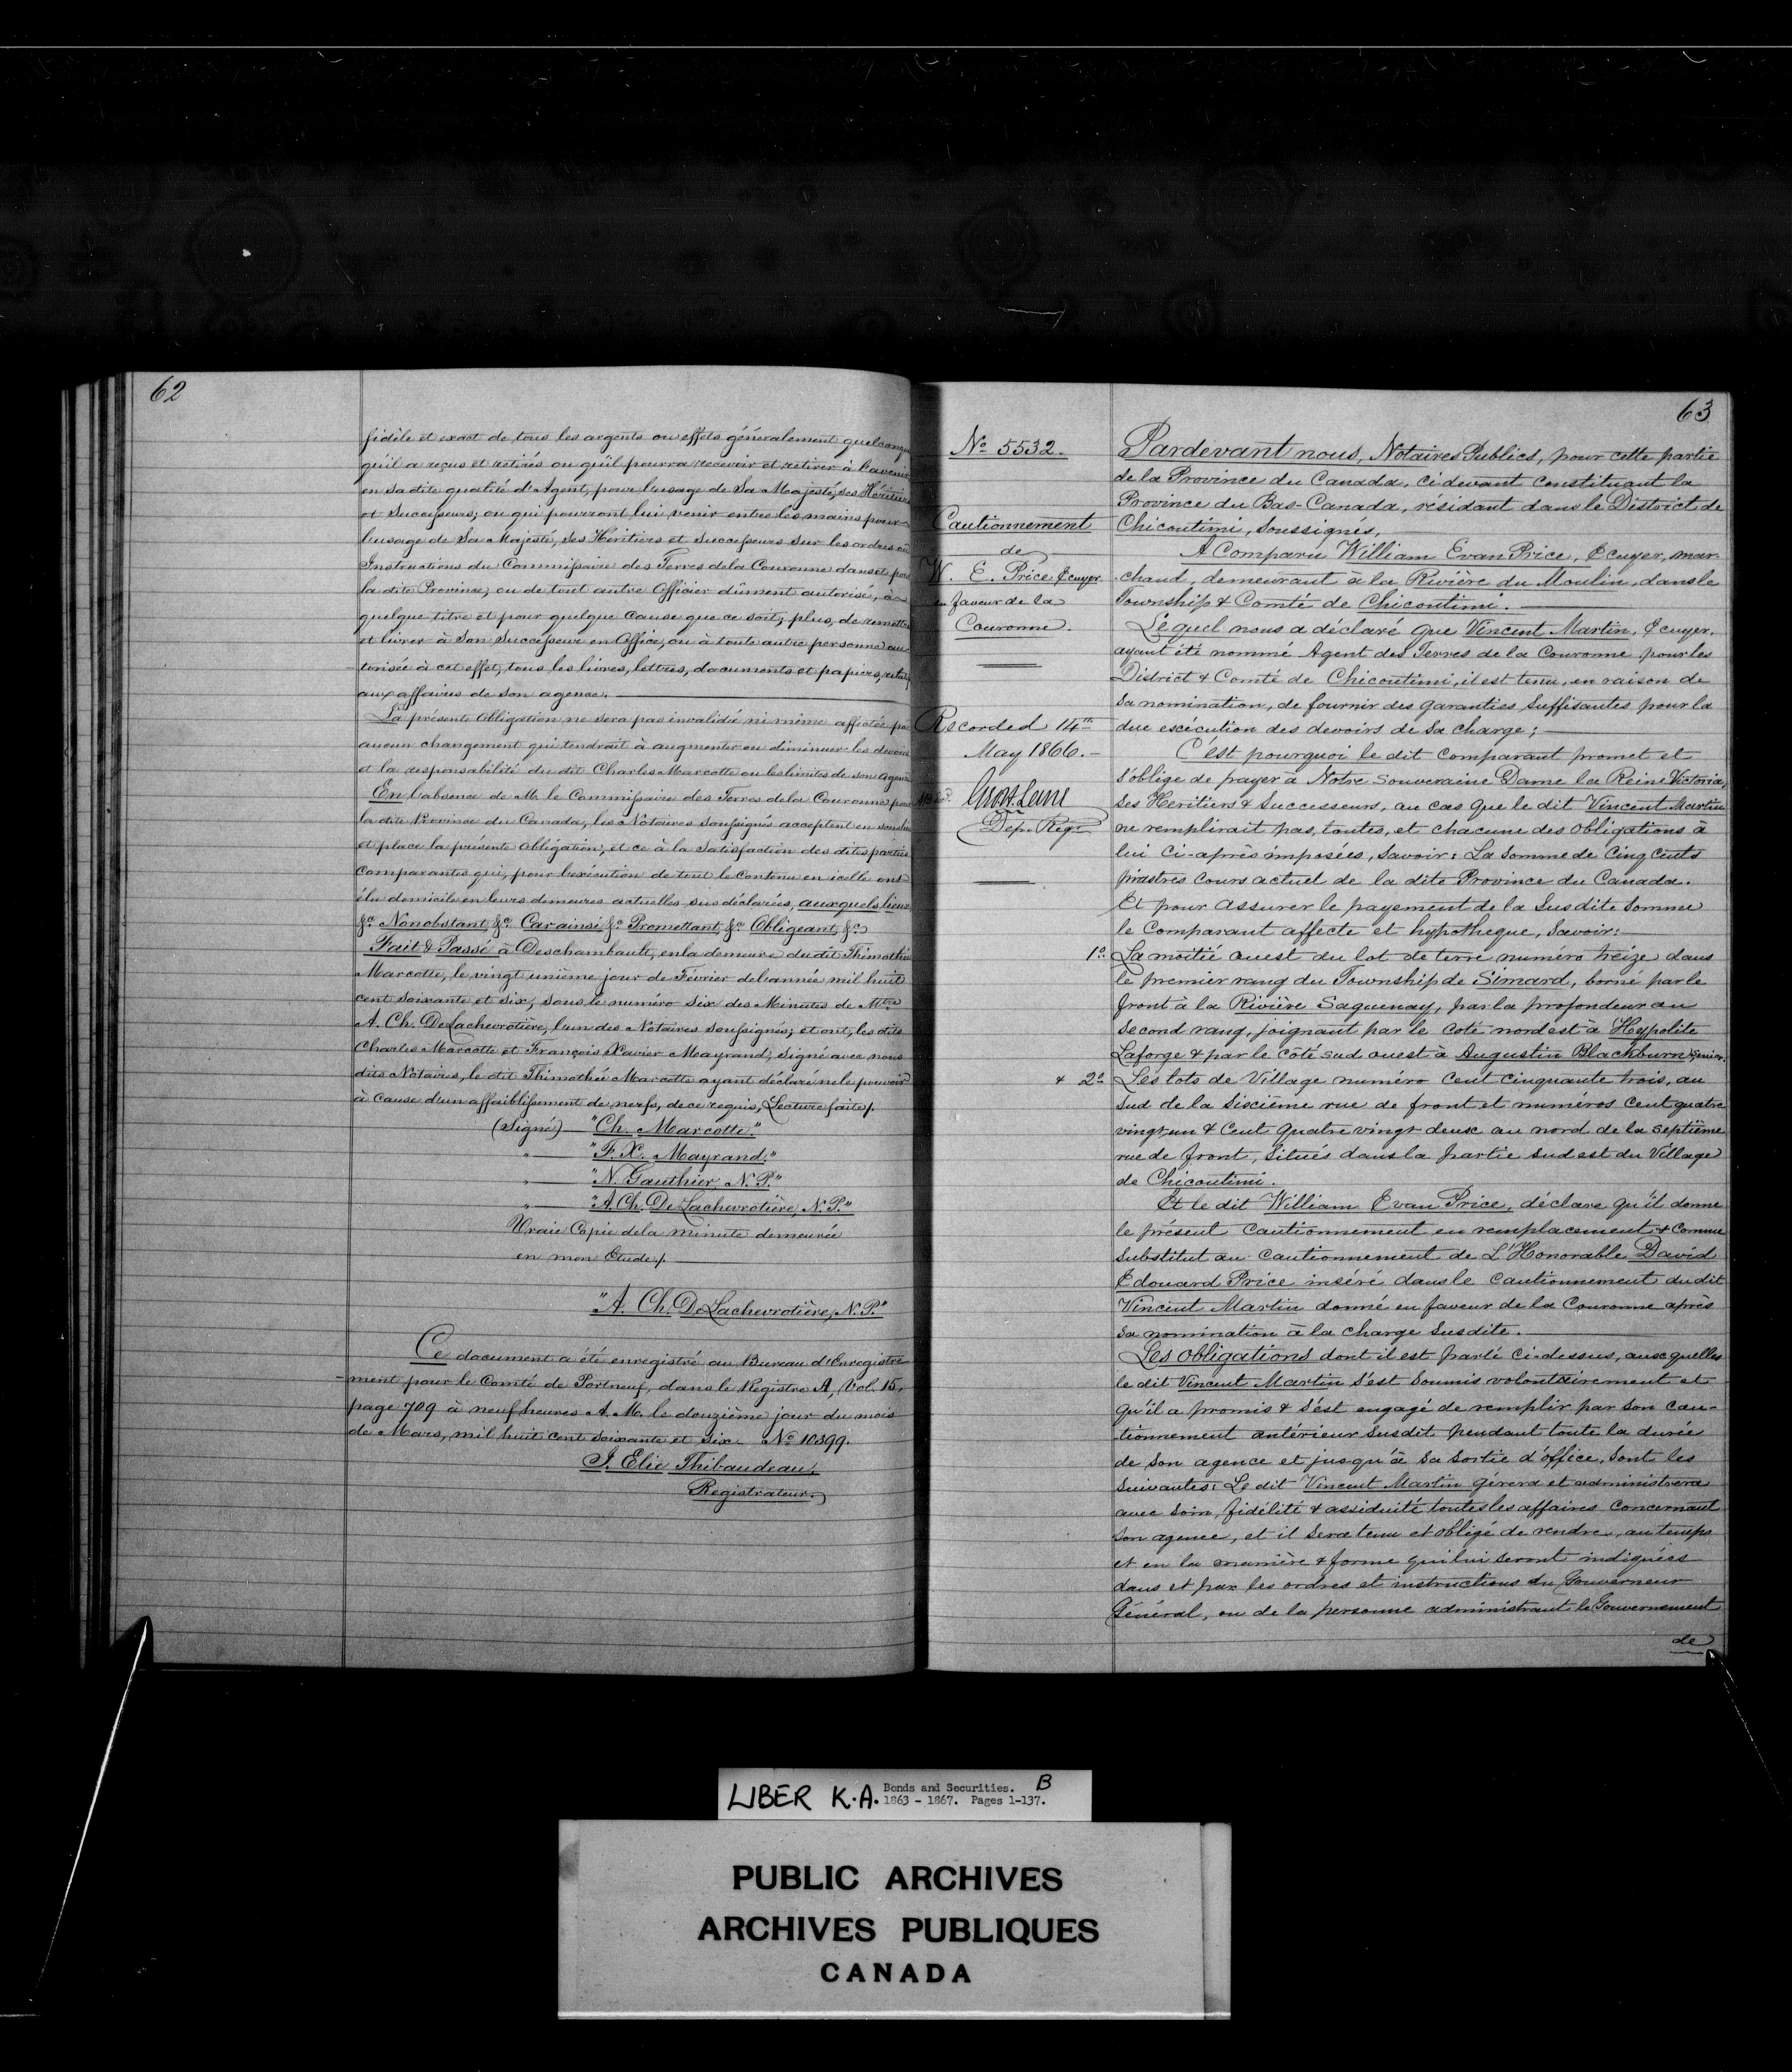 62
fidèle et exact de tous les argents ou effets généralement quelconques
qu'il a reçus et retirés ou qu'il pourra recevoir et retirer à l'avenir
en sa dite qualité d'Agent, pour l'usage de Sa Majesté, ses Héritiers
et Successeurs; ou qui pourront lui venir entre les mains pour
l'usage de Sa Majesté, Ses Héritiers et Successeurs sur les ordres ou
Instructions du Commissaire des Terres de la Couronne dans et pour
la dite Province, ou de tout autre Officier dûment autorisé, à
quelque titre et pour quelque cause que ce soit; plus, de remettre
et livrer à Son Successeur en Office, ou à toute autre personne au-
torisée à cet effet, tous les livres, lettres, documents et papiers, relatifs
aux affaires de son agence.
La présente Obligation ne sera pas invalidée ni même affectée par
aucun changement qui tendrait à augmenter ou diminuer les devoirs
et la responsabilité du dit Charles Marcotte ou les limites de son Agence
En l'absence de M. le Commissaire des Terres de la Couronne pour
la dite Province du Canada, les Notaires Soussignés acceptent en son lieu
et place la présente Obligation, et ce à la Satisfaction des dites parties
Comparantes qui, pour l'exécution de tout le contenu en icelle ont
élu domicile en leurs demeures actuelles sus déclarées, auxquels lieux
&c. Nonobstant, &c. Car ainsi &c. Promettant, &c. Obligeant, &c.
Fait & Passé à Deschambault, en la demeure du dit Thimothée
Marcotte, le vingt unième jour de Février de l'année mil huit
cent soixante et six, sous le numéro six des Minutes de Mtre
A. Ch. DeLachevrotière, l'un des Notaires soussignés; et ont, les dits
Charles Marcotte et François Xavier Mayrand, signé avec nous
dits Notaires, le dit Thimothée Marcotte ayant déclaré ne le pouvoir
à cause d'un affaiblissement de nerfs, de ce requis, Lecture faite/.
(Signé) "Ch. Marcotte."
" "F. X. Mayrand."
" "N. Gauthier, N. P."
" "A. Ch. DeLachevrotière, N. P."
Vraie Copie de la minute demeurée
en mon Etude/.
"A. Ch. DeLachevrotière, N. P."
Ce document a été enregistré au Bureau d'Enregistre-
-ment pour le Comté de Portneuf, dans le Registre A, Vol. 15,
page 709 à neuf heures A. M. le douzième jour du mois
de Mars, mil huit cent soixante et six. No 10399.
J. Elie Thibaudeau,
Registrateur.
63
No 5532.
Cautionnement
de
W. E. Price Ecuyer
en faveur de la
Couronne.
Recorded 14th
May 1866.
Dep. Regr
Pardevant nous, Notaires Publics, pour cette partie
de la Province du Canada, ci devant constituant la
Province du Bas-Canada, résidant dans le District de
Chicoutimi, Soussignés,
A Comparu William Evan Price, Ecuyer, mar-
chand, demeurant à la Rivière du Moulin, dans le
Township & Comté de Chicoutimi.
Lequel nous a déclaré que Vincent Martin, Ecuyer,
ayant été nommé Agent des Terres de la Couronne pour les
District & Comté de Chicoutimi, il est tenu, en raison de
Sa nomination, de fournir des garanties suffisantes pour la
due excécution des devoirs de Sa charge;
C'est pourquoi le dit Comparant promet et
S'oblige de payer à Notre Souveraine Dame la Reine Victoria,
Ses Heritiers & Successeurs, au cas que le dit Vincent Martin
ne remplirait pas, toutes, et chacune des obligations à
lui ci-après imposées, Savoir: La somme de Cinq Cents
piastres cours actuel de la dite Province du Canada.
Et pour assurer le payement de la Susdite Somme
le Comparant affecte et hypotheque, Savoir:
1o La moitié ouest du lot de terre numéro treize dans
le premier rang du Township de Simard, borné par le
front à la Rivière Saguenay, par la profondeur au
Second rang, joignant par le côté nord est à Hypolite
Laforge & par le côté sud ouest à Augustin Blackburn Junior.
& 2o Les lots de Village numéro Cent Cinquante trois, au
Sud de la Sixième rue de front et numéros Cent quatre
vingt-un & Cent Quatre vingt-deux au nord de la septième
rue de front, situés dans la partie sud est du Village
de Chicoutimi.
Et le dit William Evan Price, déclare qu'il donne
le présent cautionnement en remplacement & comme
Substitut au cautionnement de L'Honorable David
Edouard Price inséré dans le cautionnement du dit
Vincent Martin donné en faveur de la Couronne après
Sa nomination à la charge Susdite.
Les obligations dont il est parlé ci-dessus, auxquelles
le dit Vincent Martin s'est soumis volontairement et
qu'il a promis & s'est engagé de remplir par son cau-
-tionnement antérieur susdit pendant toute la durée
de son agence et jusqu'à sa sortie d'office, sont les
Suivantes: Le dit Vincent Martin gérera et administrera
avec soin, fidélité & assiduité toutes les affaires concernant
Son agence, et il sera tenu et obligé de rendre, au temps
et en la manière & forme qui lui seront indiquées
dans et par les ordres et instructions du Gouverneur
Général, ou de la personne administrant le Gouvernement
de
LIBER K.A. Bonds and Securities. B
1863 - 1867. Pages 1-137.
PUBLIC ARCHIVES
ARCHIVES PUBLIQUES
CANADA